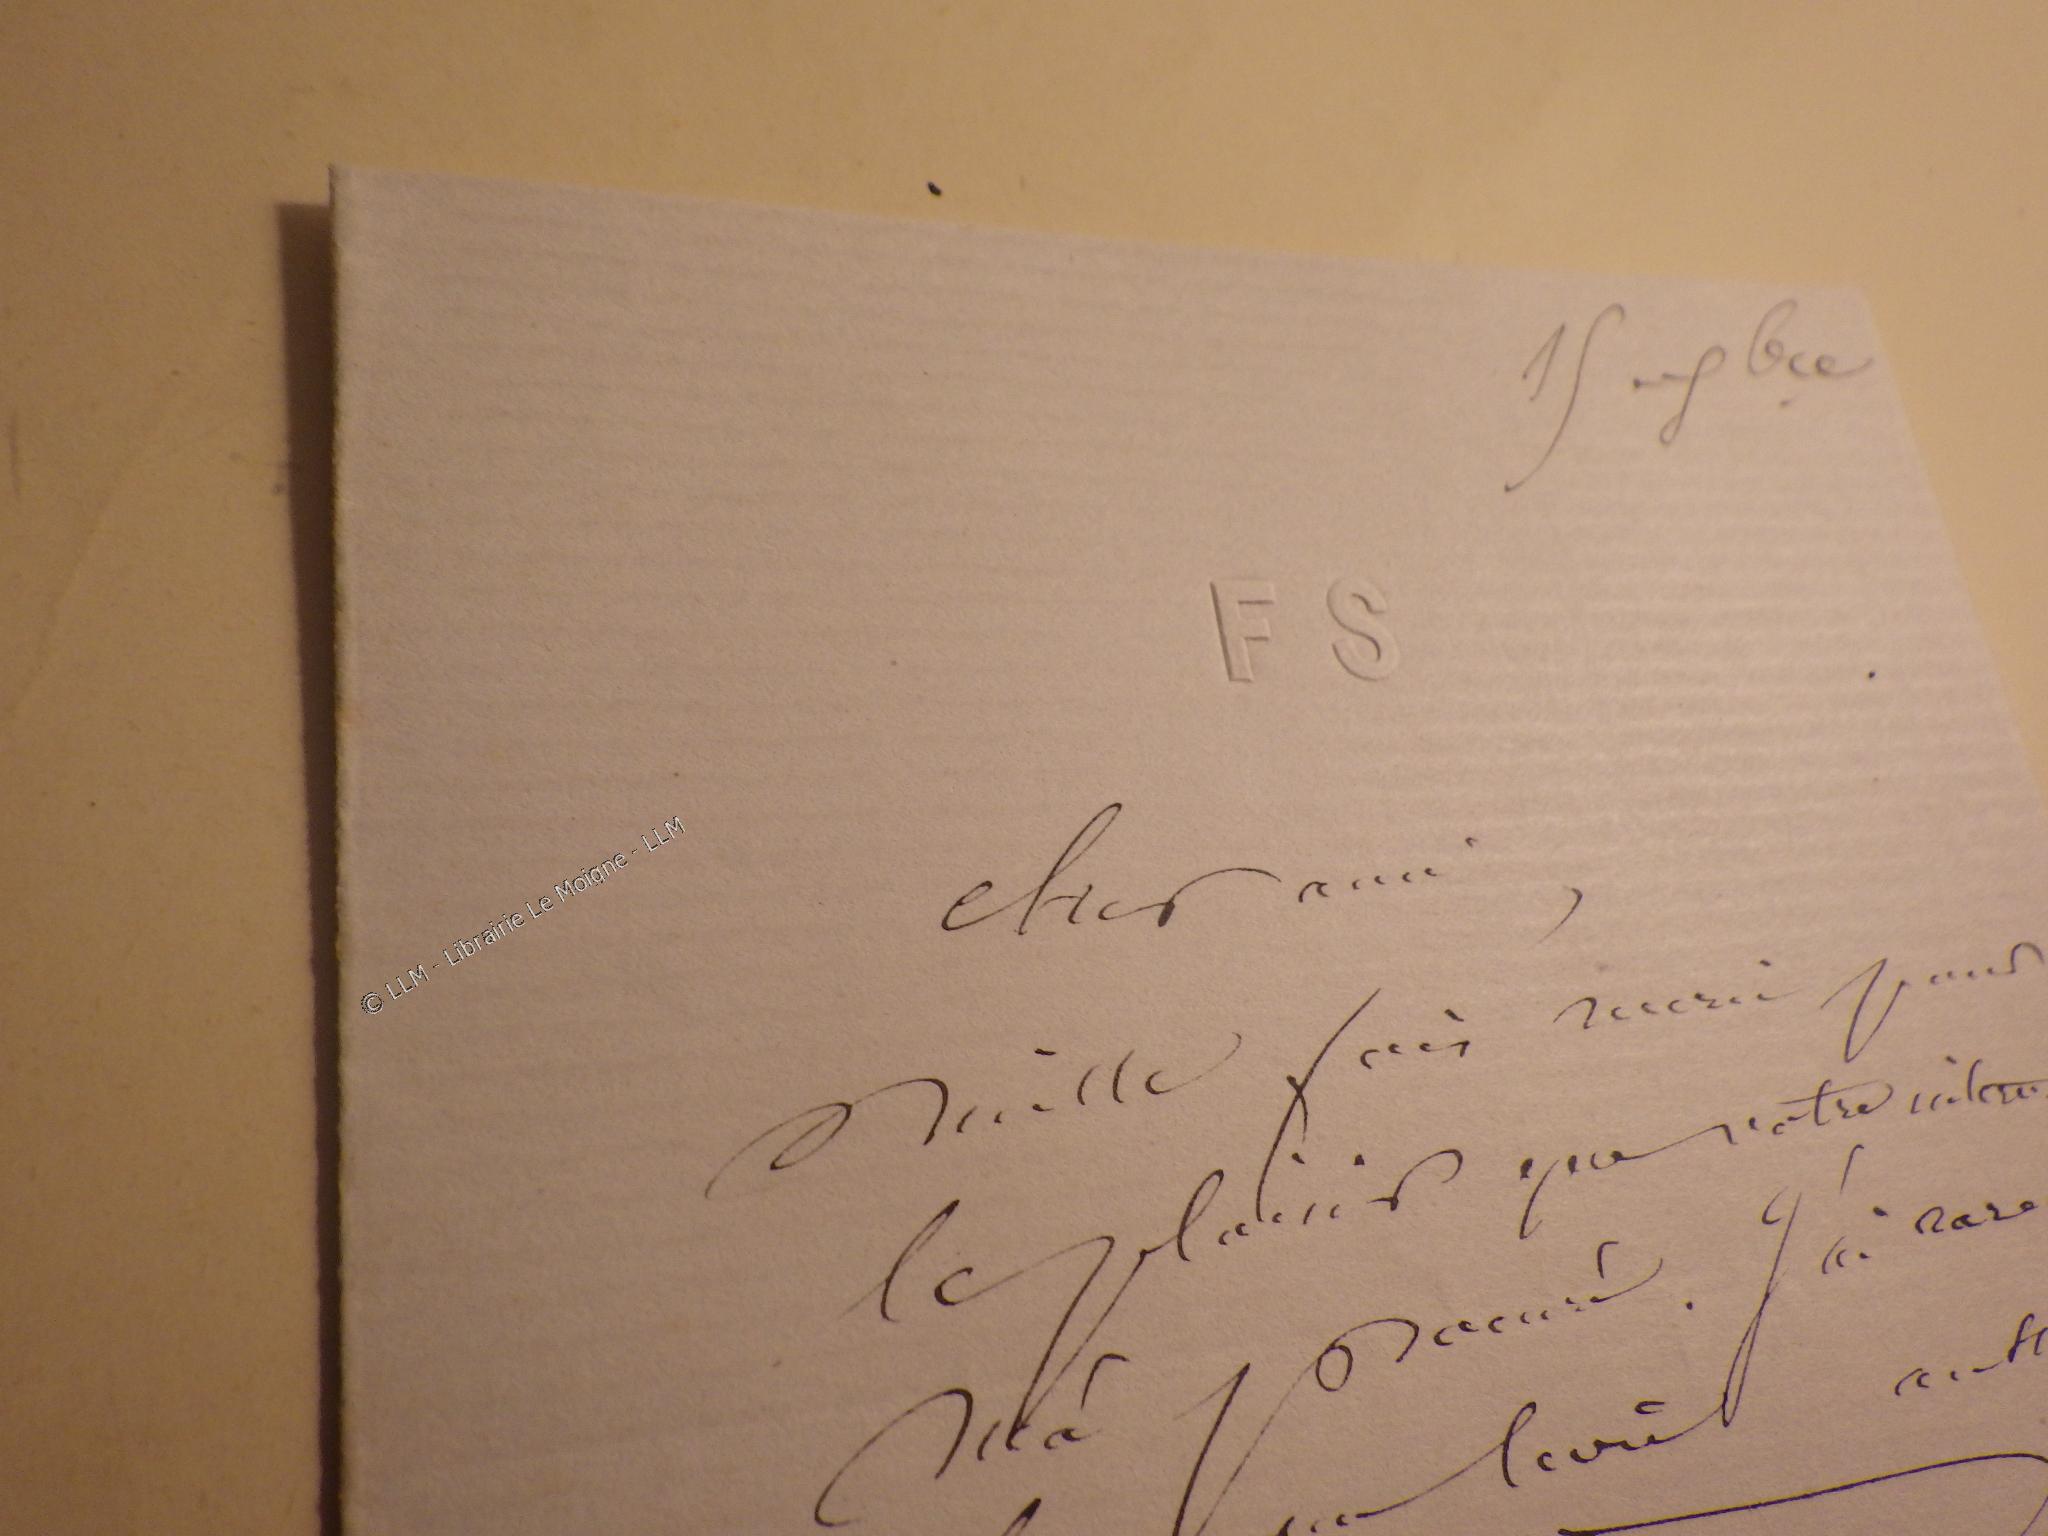 15 
F S
cher ami,
Mille fois merci pour
le plaisir que votre
m'a procuré. J'ai rare
lu un livre
© LLM - Librairie Le Moigne - LLM